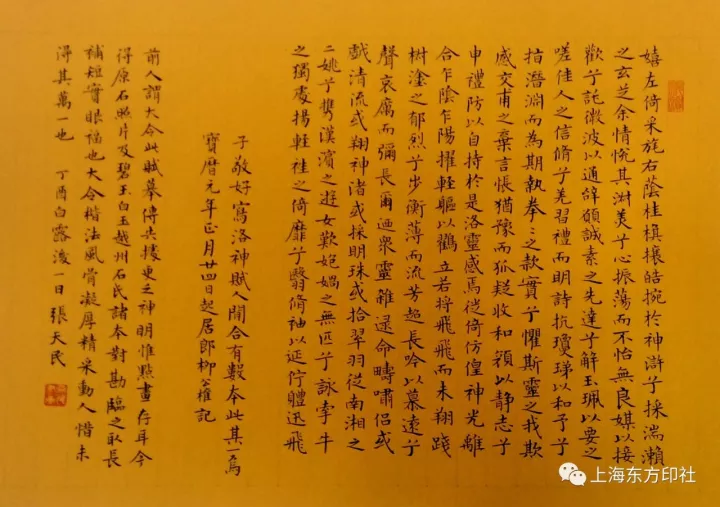 嬉左倚采旄右蔭桂旗攘皓捥於神滸兮採湍瀨
之玄芝余情恱其淑美兮心振蕩而不怡無良媒以接
歡兮託微波以通辞願誠素之先達兮解玉珮以要之
嗟佳人之信脩兮羌習禮而明詩抗瓊珶以和予兮
指潛淵而為期執拳〻之款實兮懼斯靈之我欺
感交甫之棄言悵猶豫而狐疑收和顏以静志兮
申禮防以自持於是洛靈感焉徙倚仿偟神光離
合乍陰乍陽擢軽軀以鸖立若将飛飛而未翔踐
樹塗之郁烈兮步衡薄而流芳超長吟以慕遠兮
聲哀厲而彌長爾迺衆靈雜遝命疇嘯侣或
戯清流或翔神渚或採明珠或拾翠羽従南湘之
二姚兮攜漢濱之遊女歎匏媧之無匹兮詠牽牛
之獨處揚軽袿之倚靡兮翳脩袖以延佇體迅飛
子敬好寫洛神賦人間合有數本此其一焉
寳曆元年正月廿四日起居郎柳公權記
前人謂大令此賦摹傳失據更乏神明惟點畫存耳今
得原石照片及碧玉白玉越州石氏諸本對勘臨之取長
補短實眼福也大令楷法風骨凝厚精采動人惜未
得其萬一也 丁酉白露後一日張天民
上海东方印社